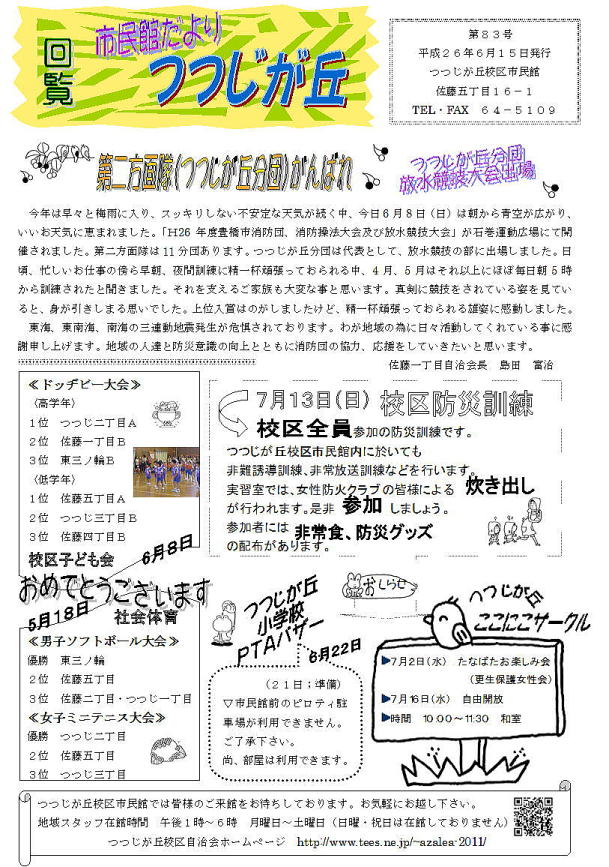 回覧
市民館だより
つつじが丘
第83号
平成26年6月15日発行
つつじが丘校区市民館
佐藤五丁目16-1
TEL・FAX 64-5109
第二方面隊(つつじが丘分団)がんばれ
つつじが丘分団
放水競技大会出場
今年は早々と梅雨に入り、スッキリしない不安定な天気が続く中、今日6月8日(日)は朝から青空が広がり、
いいお天気に恵まれました。「H26年度豊橋市消防団、消防操法大会及び放水競技大会」が石巻運動広場にて開
催されました。第二方面隊は11分団あります。つつじが丘分団は代表として、放水競技の部に出場しました。日
頃、忙しいお仕事の傍ら早朝、夜間訓練に精一杯頑張っておられる中、4月、5月はそれ以上にほぼ毎日朝5時
から訓練されたと聞きました。それを支えるご家族も大変な事と思います。真剣に競技をされている姿を見てい
ると、身が引きしまる思いでした。上位入賞はのがしましたけど、精一杯頑張っておられる雄姿に感動しました。
東海、東南海、南海の三連動地震発生が危惧されております。わが地域の為に日々活動してくれている事に感
謝申し上げます。地域の人達と防災意識の向上とともに消防団の協力、応援をしていきたいと思います。
佐藤一丁目自治会長 島田 富治
≪ドッヂビー大会≫
〈高学年〉
1位 つつじ二丁目A
2位 佐藤一丁目B
3位 東三ノ輪B
〈低学年〉
1位 佐藤五丁目A
2位 つつじ三丁目B
3位 佐藤四丁目B
校区子ども会
6月8日
おめでとうございます
5月18日
社会体育
≪男子ソフトボール大会≫
優勝 東三ノ輪
2位 佐藤五丁目
3位 佐藤二丁目・つつじ一丁目
≪女子ミニテニス大会≫
優勝 つつじ二丁目
2位 佐藤五丁目
3位 つつじ三丁目
7月13日(日) 校区防災訓練
校区全員参加の防災訓練です。
つつじが丘校区市民館内に於いても
非難誘導訓練、非常放送訓練などを行います。
実習室では、女性防火クラブの皆様による 炊き出し
が行われます。是非 参加 しましょう。
参加者には 非常食、防災グッズ
の配布があります。
つつじが丘
小学校
PTAバザー
6月22日
(21日;準備)
▽市民館前のピロティ駐
車場が利用できません。
ご了承下さい。
尚、部屋は利用できます。
おしらせ
つつじが丘
ここにこサークル
▶7月2日(水) たなばたお楽しみ会
(更生保護女性会)
▶7月16日(水) 自由開放
▶時間 10:00~11:30 和室
つつじが丘校区市民館では皆様のご来館をお待ちしております。お気軽にお越し下さい。
地域スタッフ在館時間 午後1時~6時 月曜日~土曜日(日曜・祝日は在館しておりません)
つつじが丘校区自治会ホームページ http://www.tees.ne.jp/~azalea-2011/